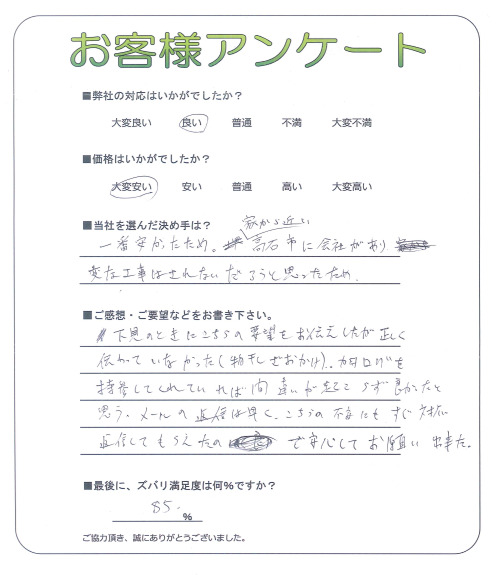 お客様アンケート
■弊社の対応はいかがでしたか？
大変良い 良い 普通 不満 大変不満
■価格はいかがでしたか？
大変安い 安い 普通 高い 大変高い
■当社を選んだ決め手は？
家から近い
一番安かったため。高石市に会社があり
変な工事はされないだろうと思ったため。
■ご感想・ご要望などをお書き下さい。
下見のときにこちらの要望をお伝えしたが正しく
伝わっていなかった(物干しざおかけ)。カタログを
持参してくれていれば間違いが起こらず良かったと
思う。メールの返信は早く、こちらの不安にもすぐ対応
返信してもらえたので安心してお願い出来た。
■最後に、ズバリ満足度は何％ですか？
85.
％
ご協力頂き、誠にありがとうございました。